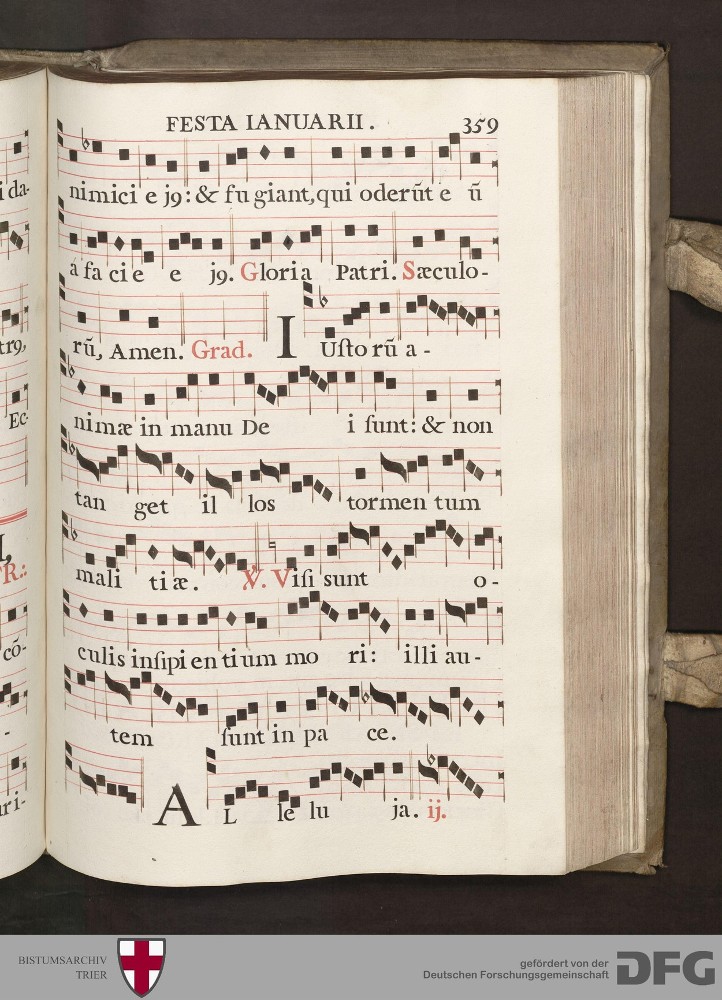 FESTA IANUARII. 359
nimici e j9: & fu giant, qui oderūt e ū
á fa cie e j9. Gloria Patri. Sæculo-
rū, Amen. Grad. I Uſto rū a-
nimæ in manu De i ſunt: & non
tan get il los tormen tum
mali tiæ. V. Viſi sunt o-
culis inſipi en tium mo ri: illi au-
tem ſunt in pa ce.
A L le lu ja. ij.
i da-
tr9,
Ec-
I,
R.:
cō-
-
uri-
BISTUMSARCHIV
TRIER
gefördert von der
Deutschen Forschungsgemeinschaft
DFG